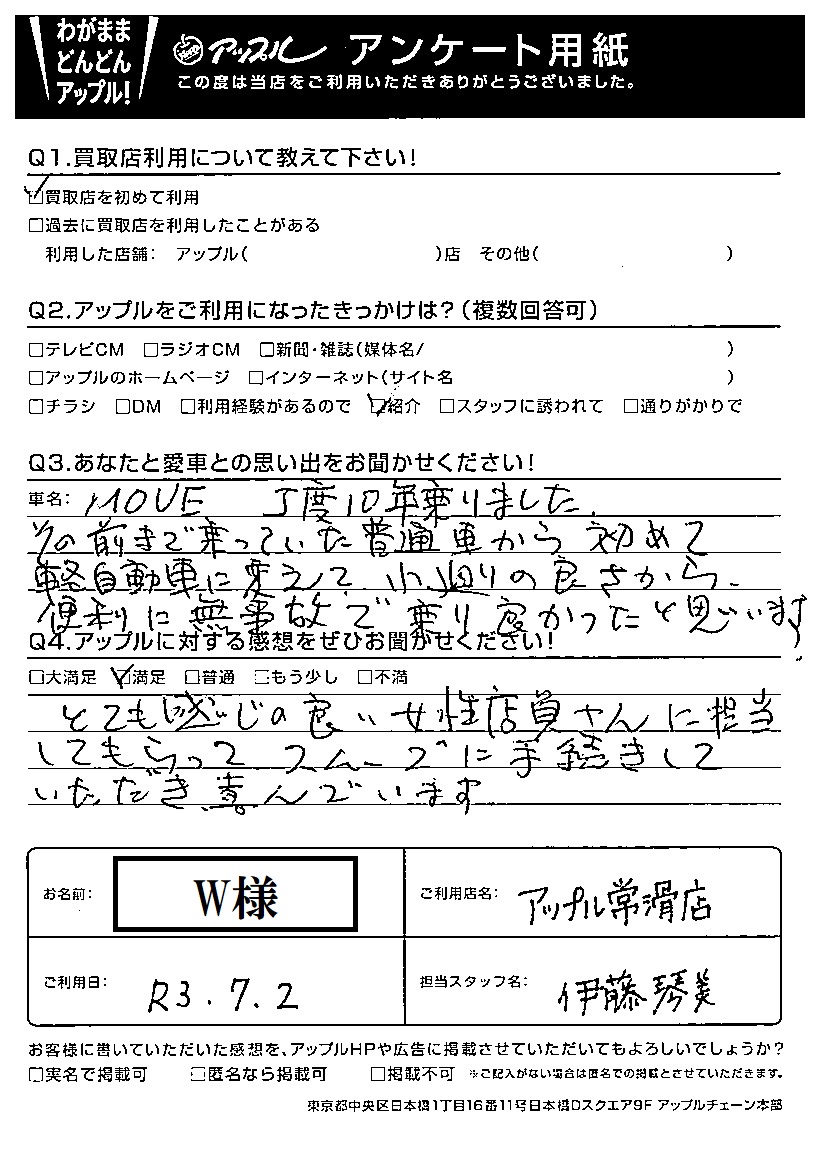 わがまま
どんどん
アップル!
アップル アンケート用紙
この度は当店をご利用いただきありがとうございました。
Q1.買取店利用について教えて下さい!
☑買取店を初めて利用
□過去に買取店を利用したことがある
利用した店舗: アップル( )店 その他( )
Q2.アップルをご利用になったきっかけは?(複数回答可)
□テレビCM □ラジオCM □新聞・雑誌(媒体名/ )
□アップルのホームページ □インターネット(サイト名 )
□チラシ □DM □利用経験があるので ☑紹介 □スタッフに誘われて □通りがかりで
Q3.あなたと愛車との思い出をお聞かせください!
車名: MOVE 丁度10年乗りました.
その前まで乗っていた普通車から初めて
軽自動車に変えて、小廻りの良さから、
便利に無事故で乗り良かったと思います。
Q4.アップルに対する感想をぜひお聞かせください!
□大満足 ☑満足 □普通 □もう少し □不満
とても感じの良い女性店員さんに担当
してもらって スムーズに手続きして
いただき喜んでいます
お名前: W様
ご利用店名: アップル常滑店
ご利用日: R3.7.2
担当スタッフ名: 伊藤琴美
お客様に書いていただいた感想を、アップルHPや広告に掲載させていただいてもよろしいでしょうか?
□実名で掲載可 □匿名なら掲載可 □掲載不可 ※ご記入がない場合は匿名での掲載とさせていただきます。
東京都中央区日本橋1丁目16番11号日本橋Dスクエア9F アップルチェーン本部